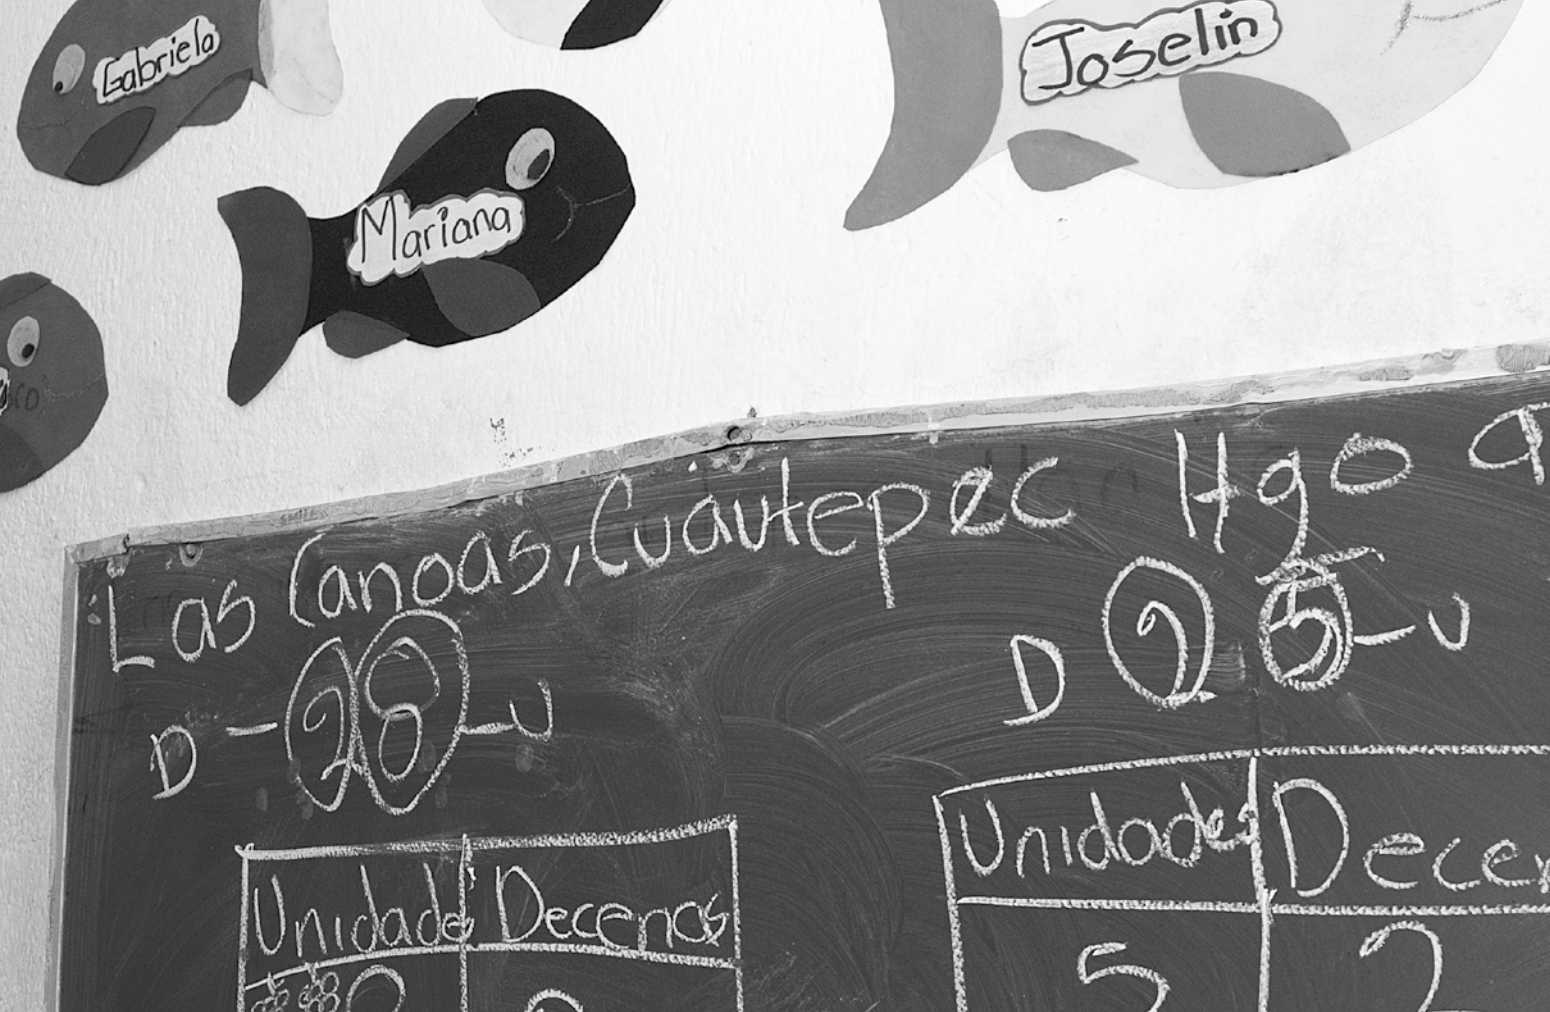 Gabriela
Joselin
Mariana
Las Canoas, Cuautepec Hgo a
D - 28 - U
D 25 - U
Unidades Decenas
Unidades Decen
5 2